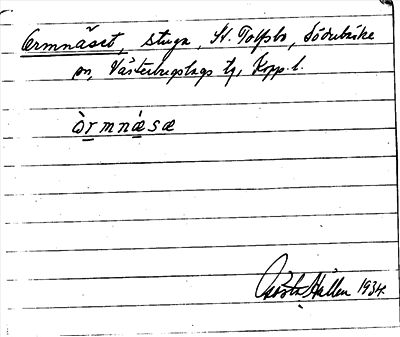 Ormnäset, stuga, St. Tolfsbo, Söderbärke
sn, Västerbergslags tg, Kopp. l.
òrmnæ̀sæ
Gösta Hallén 1934.